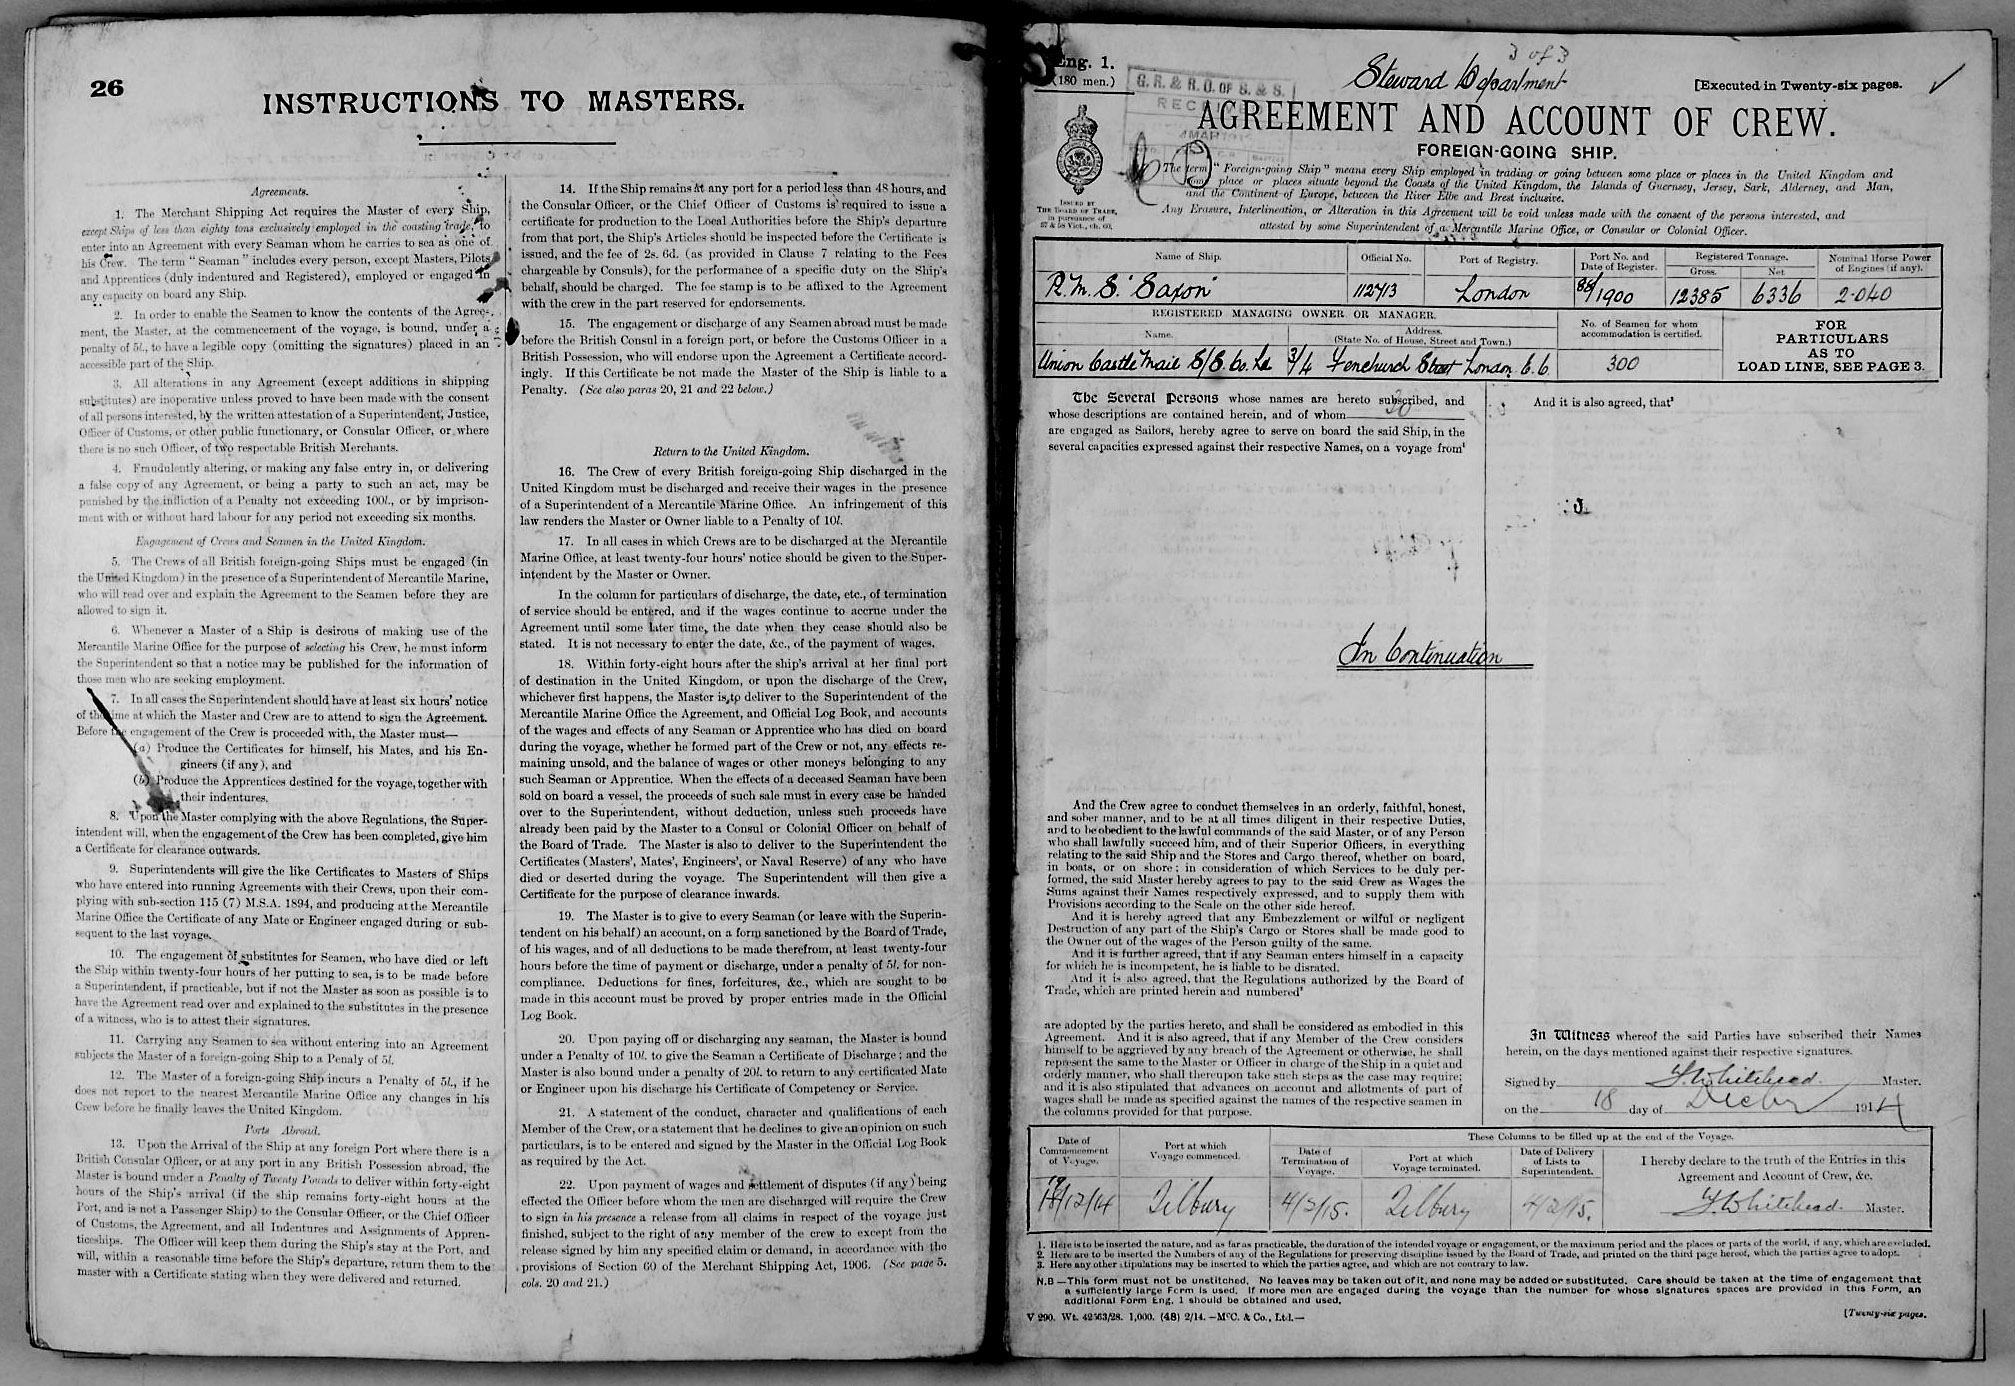 26
INSTRUCTIONS TO MASTERS.
Agreements.
1. The Merchant Shipping Act requires the Master of every Ship,
except Ships of less than eighty tons exclusively employed in the coasting trade, to
enter into an Agreement with every Seaman whom he carries to sea as one of
his Crew. The term "Seaman" includes every person, except Masters, Pilots,
and Apprentices (duly indentured and Registered), employed or engaged in
any capacity on board any Ship.
2. In order to enable the Seamen to know the contents of the Agree-
ment, the Master, at the commencement of the voyage, is bound, under a
penalty of 5l., to have a legible copy (omitting the signatures) placed in an
accessible part of the Ship.
3. All alterations in any Agreement (except additions in shipping
substitutes) are inoperative unless proved to have been made with the consent
of all persons interested, by the written attestation of a Superintendent, Justice,
Officer of Customs, or other public functionary, or Consular Officer, or where
there is no such Officer, of two respectable British Merchants.
4. Fraudulently altering, or making any false entry in, or delivering
a false copy of any Agreement, or being a party to such an act, may be
punished by the infliction of a Penalty not exceeding 100l., or by imprison-
ment with or without hard labour for any period not exceeding six months.
Engagement of Crews and Seamen in the United Kingdom.
5. The Crews of all British foreign-going Ships must be engaged (in
the United Kingdom) in the presence of a Superintendent of Mercantile Marine,
who will read over and explain the Agreement to the Seamen before they are
allowed to sign it.
6. Whenever a Master of a Ship is desirous of making use of the
Mercantile Marine Office for the purpose of selecting his Crew, he must inform
the Superintendent so that a notice may be published for the information of
those men who are seeking employment.
7. In all cases the Superintendent should have at least six hours' notice
of the time at which the Master and Crew are to attend to sign the Agreement.
Before the engagement of the Crew is proceeded with, the Master must—
(a) Produce the Certificates for himself, his Mates, and his En-
gineers (if any), and
(b) Produce the Apprentices destined for the voyage, together with
their indentures.
8. Upon the Master complying with the above Regulations, the Super-
intendent will, when the engagement of the Crew has been completed, give him
a Certificate for clearance outwards.
9. Superintendents will give the like Certificates to Masters of Ships
who have entered into running Agreements with their Crews, upon their com-
plying with sub-section 115 (7) M.S.A. 1894, and producing at the Mercantile
Marine Office the Certificate of any Mate or Engineer engaged during or sub-
sequent to the last voyage.
10. The engagement of substitutes for Seamen, who have died or left
the Ship within twenty-four hours of her putting to sea, is to be made before
a Superintendent, if practicable, but if not the Master as soon as possible is to
have the Agreement read over and explained to the substitutes in the presence
of a witness, who is to attest their signatures.
11. Carrying any Seamen to sea without entering into an Agreement
subjects the Master of a foreign-going Ship to a Penaly of 5l.
12. The Master of a foreign-going Ship incurs a Penalty of 5l., if he
does not report to the nearest Mercantile Marine Office any changes in his
Crew before he finally leaves the United Kingdom.
Ports Abroad.
13. Upon the Arrival of the Ship at any foreign Port where there is a
British Consular Officer, or at any port in any British Possession abroad, the
Master is bound under a Penalty of Twenty Pounds to deliver within forty-eight
hours of the Ship's arrival (if the ship remains forty-eight hours at the
Port, and is not a Passenger Ship) to the Consular Officer, or the Chief Officer
of Customs, the Agreement, and all Indentures and Assignments of Appren-
ticeships. The Officer will keep them during the Ship's stay at the Port, and
will, within a reasonable time before the Ship's departure, return them to the
master with a Certificate stating when they were delivered and returned.
14. If the Ship remains at any port for a period less than 48 hours, and
the Consular Officer, or the Chief Officer of Customs is required to issue a
certificate for production to the Local Authorities before the Ship's departure
from that port, the Ship's Articles should be inspected before the Certificate is
issued, and the fee of 2s. 6d. (as provided in Clause 7 relating to the Fees
chargeable by Consuls), for the performance of a specific duty on the Ship's
behalf, should be charged. The fee stamp is to be affixed to the Agreement
with the crew in the part reserved for endorsements.
15. The engagement or discharge of any Seamen abroad must be made
before the British Consul in a foreign port, or before the Customs Officer in a
British Possession, who will endorse upon the Agreement a Certificate accord-
ingly. If this Certificate be not made the Master of the Ship is liable to a
Penalty. (See also paras 20, 21 and 22 below.)
Return to the United Kingdom.
16. The Crew of every British foreign-going Ship discharged in the
United Kingdom must be discharged and receive their wages in the presence
of a Superintendent of a Mercantile Marine Office. An infringement of this
law renders the Master or Owner liable to a Penalty of 10l.
17. In all cases in which Crews are to be discharged at the Mercantile
Marine Office, at least twenty-four hours' notice should be given to the Super-
intendent by the Master or Owner.
In the column for particulars of discharge, the date, etc., of termination
of service should be entered, and if the wages continue to accrue under the
Agreement until some later time, the date when they cease should also be
stated. It is not necessary to enter the date, &c., of the payment of wages.
18. Within forty-eight hours after the ship's arrival at her final port
of destination in the United Kingdom, or upon the discharge of the Crew,
whichever first happens, the Master is to deliver to the Superintendent of the
Mercantile Marine Office the Agreement, and Official Log Book, and accounts
of the wages and effects of any Seaman or Apprentice who has died on board
during the voyage, whether he formed part of the Crew or not, any effects re-
maining unsold, and the balance of wages or other moneys belonging to any
such Seaman or Apprentice. When the effects of a deceased Seaman have been
sold on board a vessel, the proceeds of such sale must in every case be handed
over to the Superintendent, without deduction, unless such proceeds have
already been paid by the Master to a Consul or Colonial Officer on behalf of
the Board of Trade. The Master is also to deliver to the Superintendent the
Certificates (Masters', Mates', Engineers', or Naval Reserve) of any who have
died or deserted during the voyage. The Superintendent will then give a
Certificate for the purpose of clearance inwards.
19. The Master is to give to every Seaman (or leave with the Superin-
tendent on his behalf) an account, on a form sanctioned by the Board of Trade,
of his wages, and of all deductions to be made therefrom, at least twenty-four
hours before the time of payment or discharge, under a penalty of 5l. for non-
compliance. Deductions for fines, forfeitures, &c., which are sought to be
made in this account must be proved by proper entries made in the Official
Log Book.
20. Upon paying off or discharging any seaman, the Master is bound
under a Penalty of 10l. to give the Seaman a Certificate of Discharge; and the
Master is also bound under a penalty of 20l. to return to any certificated Mate
or Engineer upon his discharge his Certificate of Competency or Service.
21. A statement of the conduct, character and qualifications of each
Member of the Crew, or a statement that he declines to give an opinion on such
particulars, is to be entered and signed by the Master in the Official Log Book
as required by the Act.
22. Upon payment of wages and settlement of disputes (if any) being
effected the Officer before whom the men are discharged will require the Crew
to sign in his presence a release from all claims in respect of the voyage just
finished, subject to the right of any member of the crew to except from the
release signed by him any specified claim or demand, in accordance with the
provisions of Section 60 of the Merchant Shipping Act, 1906. (See page 5.
cols. 20 and 21.)
3 of 3
Eng. 1.
(180 men.)
Steward Department
[Executed in Twenty-six pages.
G. R. & R. O. OF S. & S.
AGREEMENT AND ACCOUNT OF CREW.
FOREIGN-GOING SHIP.
The term "Foreign-going Ship" means every Ship employed in trading or going between some place or places in the United Kingdom and
some place or places situate beyond the Coasts of the United Kingdom, the Islands of Guernsey, Jersey, Sark, Alderney, and Man,
and the Continent of Europe, between the River Elbe and Brest inclusive.
Any Erasure, Interlineation, or Alteration in this Agreement will be void unless made with the consent of the persons interested, and
attested by some Superintendent of a Mercantile Marine Office, or Consular or Colonial Officer.
ISSUED BY
THE BOARD OF TRADE,
in pursuance of
57 & 58 Vict., ch. 60.
Name of Ship. Official No. Port of Registry. Port No. and Date of Register. Registered Tonnage. Gross. Net Nominal Horse Power of Engines (if any).
R.M.S. "Saxon" 112713 London 88/1900 12385 6336 2.040
REGISTERED MANAGING OWNER OR MANAGER.
Name. Address. (State No. of House, Street and Town.)
No. of Seamen for whom accommodation is certified.
Union Castle Mail S/S. Co. Ld 3/4 Fenchurch Street London E.C. 300
FOR
PARTICULARS
AS TO
LOAD LINE, SEE PAGE 3.
The Several Persons whose names are hereto subscribed, and
whose descriptions are contained herein, and of whom 30
are engaged as Sailors, hereby agree to serve on board the said Ship, in the
several capacities expressed against their respective Names, on a voyage from¹
And it is also agreed, that³
In Continuation
And the Crew agree to conduct themselves in an orderly, faithful, honest,
and sober manner, and to be at all times diligent in their respective Duties,
and to be obedient to the lawful commands of the said Master, or of any Person
who shall lawfully succeed him, and of their Superior Officers, in everything
relating to the said Ship and the Stores and Cargo thereof, whether on board,
in boats, or on shore; in consideration of which Services to be duly per-
formed, the said Master hereby agrees to pay to the said Crew as Wages the
Sums against their Names respectively expressed, and to supply them with
Provisions according to the Scale on the other side hereof.
And it is hereby agreed that any Embezzlement or wilful or negligent
Destruction of any part of the Ship's Cargo or Stores shall be made good to
the Owner out of the wages of the Person guilty of the same.
And it is further agreed, that if any Seaman enters himself in a capacity
for which he is incompetent, he is liable to be disrated.
And it is also agreed, that the Regulations authorized by the Board of
Trade, which are printed herein and numbered²
are adopted by the parties hereto, and shall be considered as embodied in this
Agreement. And it is also agreed, that if any Member of the Crew considers
himself to be aggrieved by any breach of the Agreement or otherwise, he shall
represent the same to the Master or Officer in charge of the Ship in a quiet and
orderly manner, who shall thereupon take such steps as the case may require;
and it is also stipulated that advances on account and allotments of part of
wages shall be made as specified against the names of the respective seamen in
the columns provided for that purpose.
In Witness whereof the said Parties have subscribed their Names
herein, on the days mentioned against their respective signatures.
Signed by F. Whitehead. Master.
on the 18 day of Decbr 1914
Date of Commencement of Voyage. Port at which Voyage commenced.
These Columns to be filled up at the end of the Voyage.
Date of Termination of Voyage. Port at which Voyage terminated. Date of Delivery of Lists to Superintendent.
I hereby declare to the truth of the Entries in this
Agreement and Account of Crew, &c.
19/12/14 Tilbury 4/2/15. Tilbury 4/2/15. F. Whitehead. Master.
1. Here is to be inserted the nature, and as far as practicable, the duration of the intended voyage or engagement, or the maximum period and the places or parts of the world, if any, which are excluded.
2. Here are to be inserted the Numbers of any of the Regulations for preserving discipline issued by the Board of Trade, and printed on the third page hereof, which the parties agree to adopt.
3. Here any other stipulations may be inserted to which the parties agree, and which are not contrary to law.
N.B —This form must not be unstitched. No leaves may be taken out of it, and none may be added or substituted. Care should be taken at the time of engagement that
a sufficiently large Form is used. If more men are engaged during the voyage than the number for whose signatures spaces are provided in this Form, an
additional Form Eng. 1 should be obtained and used.
V 290. Wt. 42563/28. 1,000. (48) 2/14. —McC. & Co., Ltd.—
[Twenty-six pages.